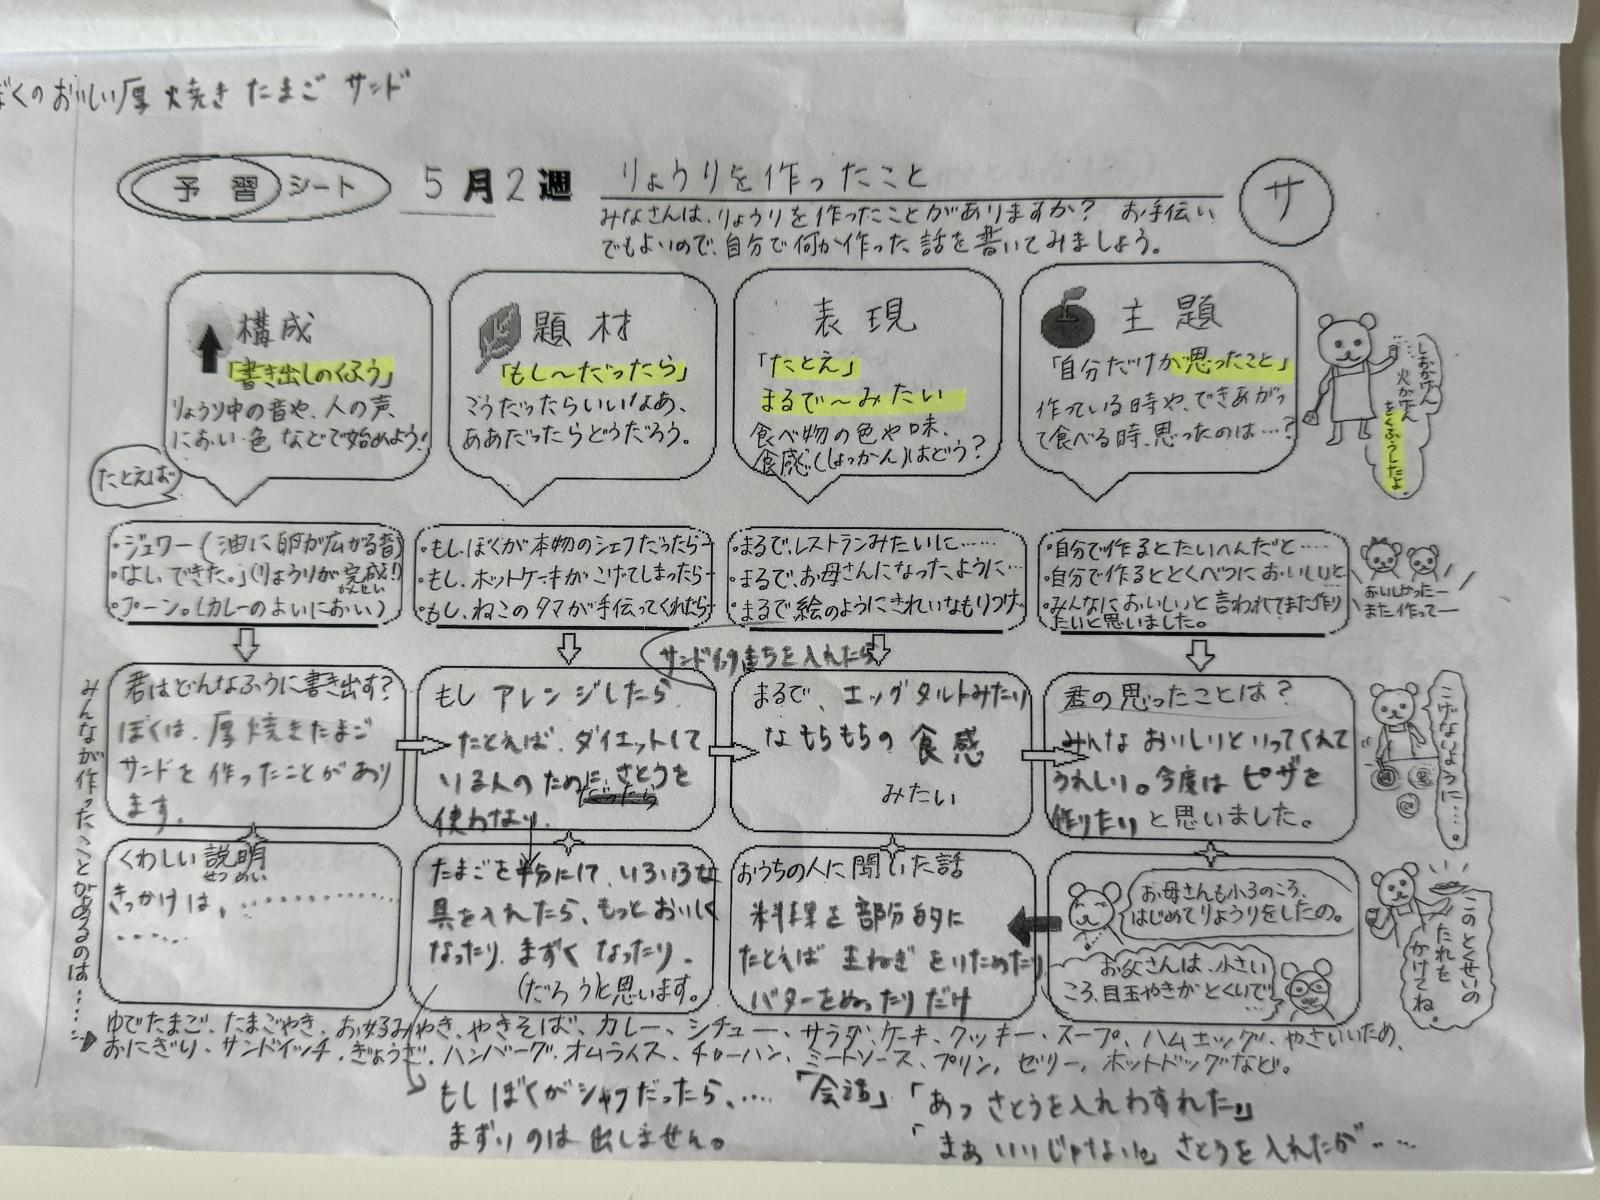 ぼくのおいしい厚焼きたまごサンド
予習シート
5月2週
りょうりを作ったこと
サ
みなさんは、りょうりを作ったことがありますか? お手伝い
でもよいので、自分で何か作った話を書いてみましょう。
構成
「書き出しのくふう」
りょうり中の音や、人の声、
におい・色などで始めよう!
題材
「もし〜だったら」
こうだったらいいなあ、
ああだったらどうだろう。
表現
「たとえ」
まるで〜みたい
食べ物の色や味、
食感(しょっかん)はどう?
主題
「自分だけが思ったこと」
作っている時や、できあがっ
て食べる時、思ったのは…?
しおかげん
火かげん
をくふうしたよ。
たとえば
・ジュワー(油に卵が広がる音)
・「よし、できた。」(りょうりが完成!)
かんせい
・プーン。(カレーのよいにおい)
・もし、ぼくが本物のシェフだったら―
・もし、ホットケーキがこげてしまったら―
・もし、ねこのタマが手伝ってくれたら―
・まるで、レストランみたいに……
・まるで、お母さんになった、ように…
・まるで絵のようにきれいなもりつけ。
・自分で作るとたいへんだと……
・自分で作るととくべつにおいしいと
・みんなにおいしいと言われてまた作り
たいと思いました。
おいしかったー
また作ってー
サンドイッチ
を入れたら
君はどんなふうに書き出す?
ぼくは、厚焼きたまご
サンドを作ったことがあり
ます。
もし アレンジしたら
たとえば、ダイエットして
いる人のために、さとうを
だったら
使わない、
まるで、エッグタルトみたい
なもちもちの食感
みたい
君の思ったことは?
みんなおいしいといってくれて
うれしい。今度はピザを
作りたい と思いました。
こげないように……。
くわしい説明
せつめい
きっかけは、…………
……
たまごを半分にして、いろいろな
具を入れたら、もっとおいしく
なったり、まずくなったり、
(だろう)と思います。
おうちの人に聞いた話
料理を部分的に
たとえば玉ねぎをいためたり
バターをぬったりだけ
お母さんも小3のころ、
はじめてりょうりをしたの。
お父さんは、小さい
ころ、目玉やきがとくいで
…
このとくせいの
たれを
かけてね。
みんなが作ったことがあるのは……
ゆでたまご、たまごやき、お好みやき、やきそば、カレー、シチュー、サラダ、ケーキ、クッキー、スープ、ハムエッグ、やさいいため、
おにぎり、サンドイッチ、ぎょうざ、ハンバーグ、オムライス、チャーハン、ミートソース、プリン、ゼリー、ホットドッグなど。
もしぼくがシャフだったら、…
まずいのは出しません。
「会話」
「あっさとうを入れわすれた。」
「まあいいじゃない。」さとうを入れたが‥‥